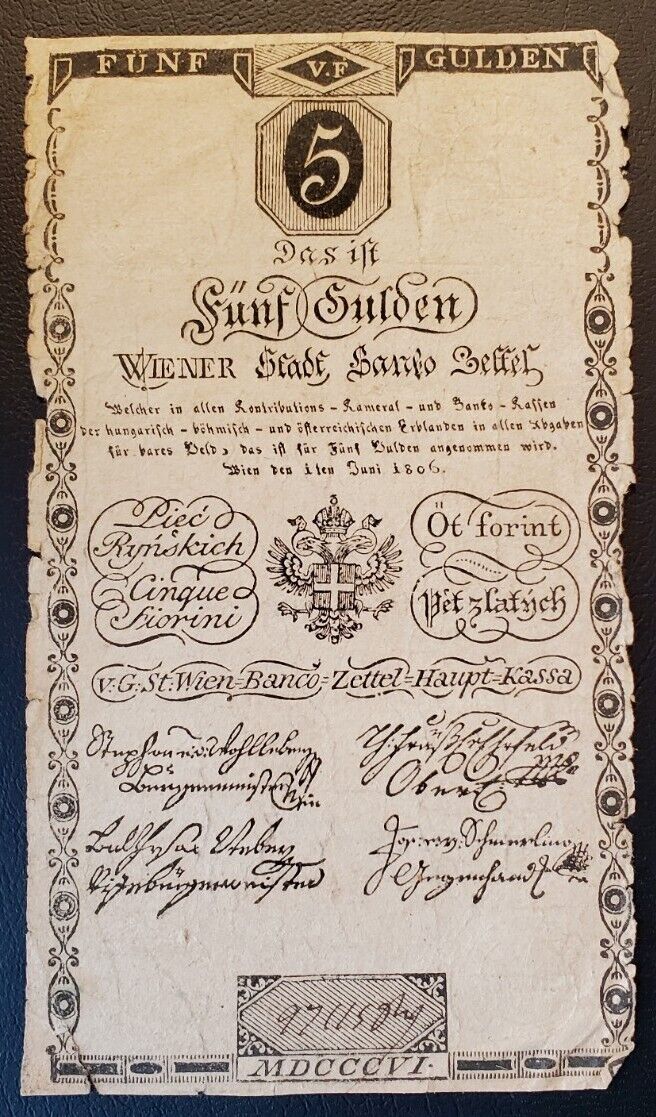 FÜNF V.F GULDEN
5
Das ist
Fünf Gulden
WIENER Stadt Banko Zettel
Welcher in allen Kontributions - Kameral - und Banko - Kassen
der hungarisch - böhmisch - und österreichischen Erblanden in allen Abgaben
für bares Geld, das ist für Fünf Gulden angenommen wird.
Wien den 1ten Juni 1806.
Pięć
Ryńskich
Cinque
Fiorini
Öt forint
Pět zlatých
v: G: St: Wien=Banco=Zettel=Haupt=Kassa
Stephan v: Wohlleben
Burgermeister
Ober
Vizebürgermeister
Jos: v: Schmerling
MDCCCVI.